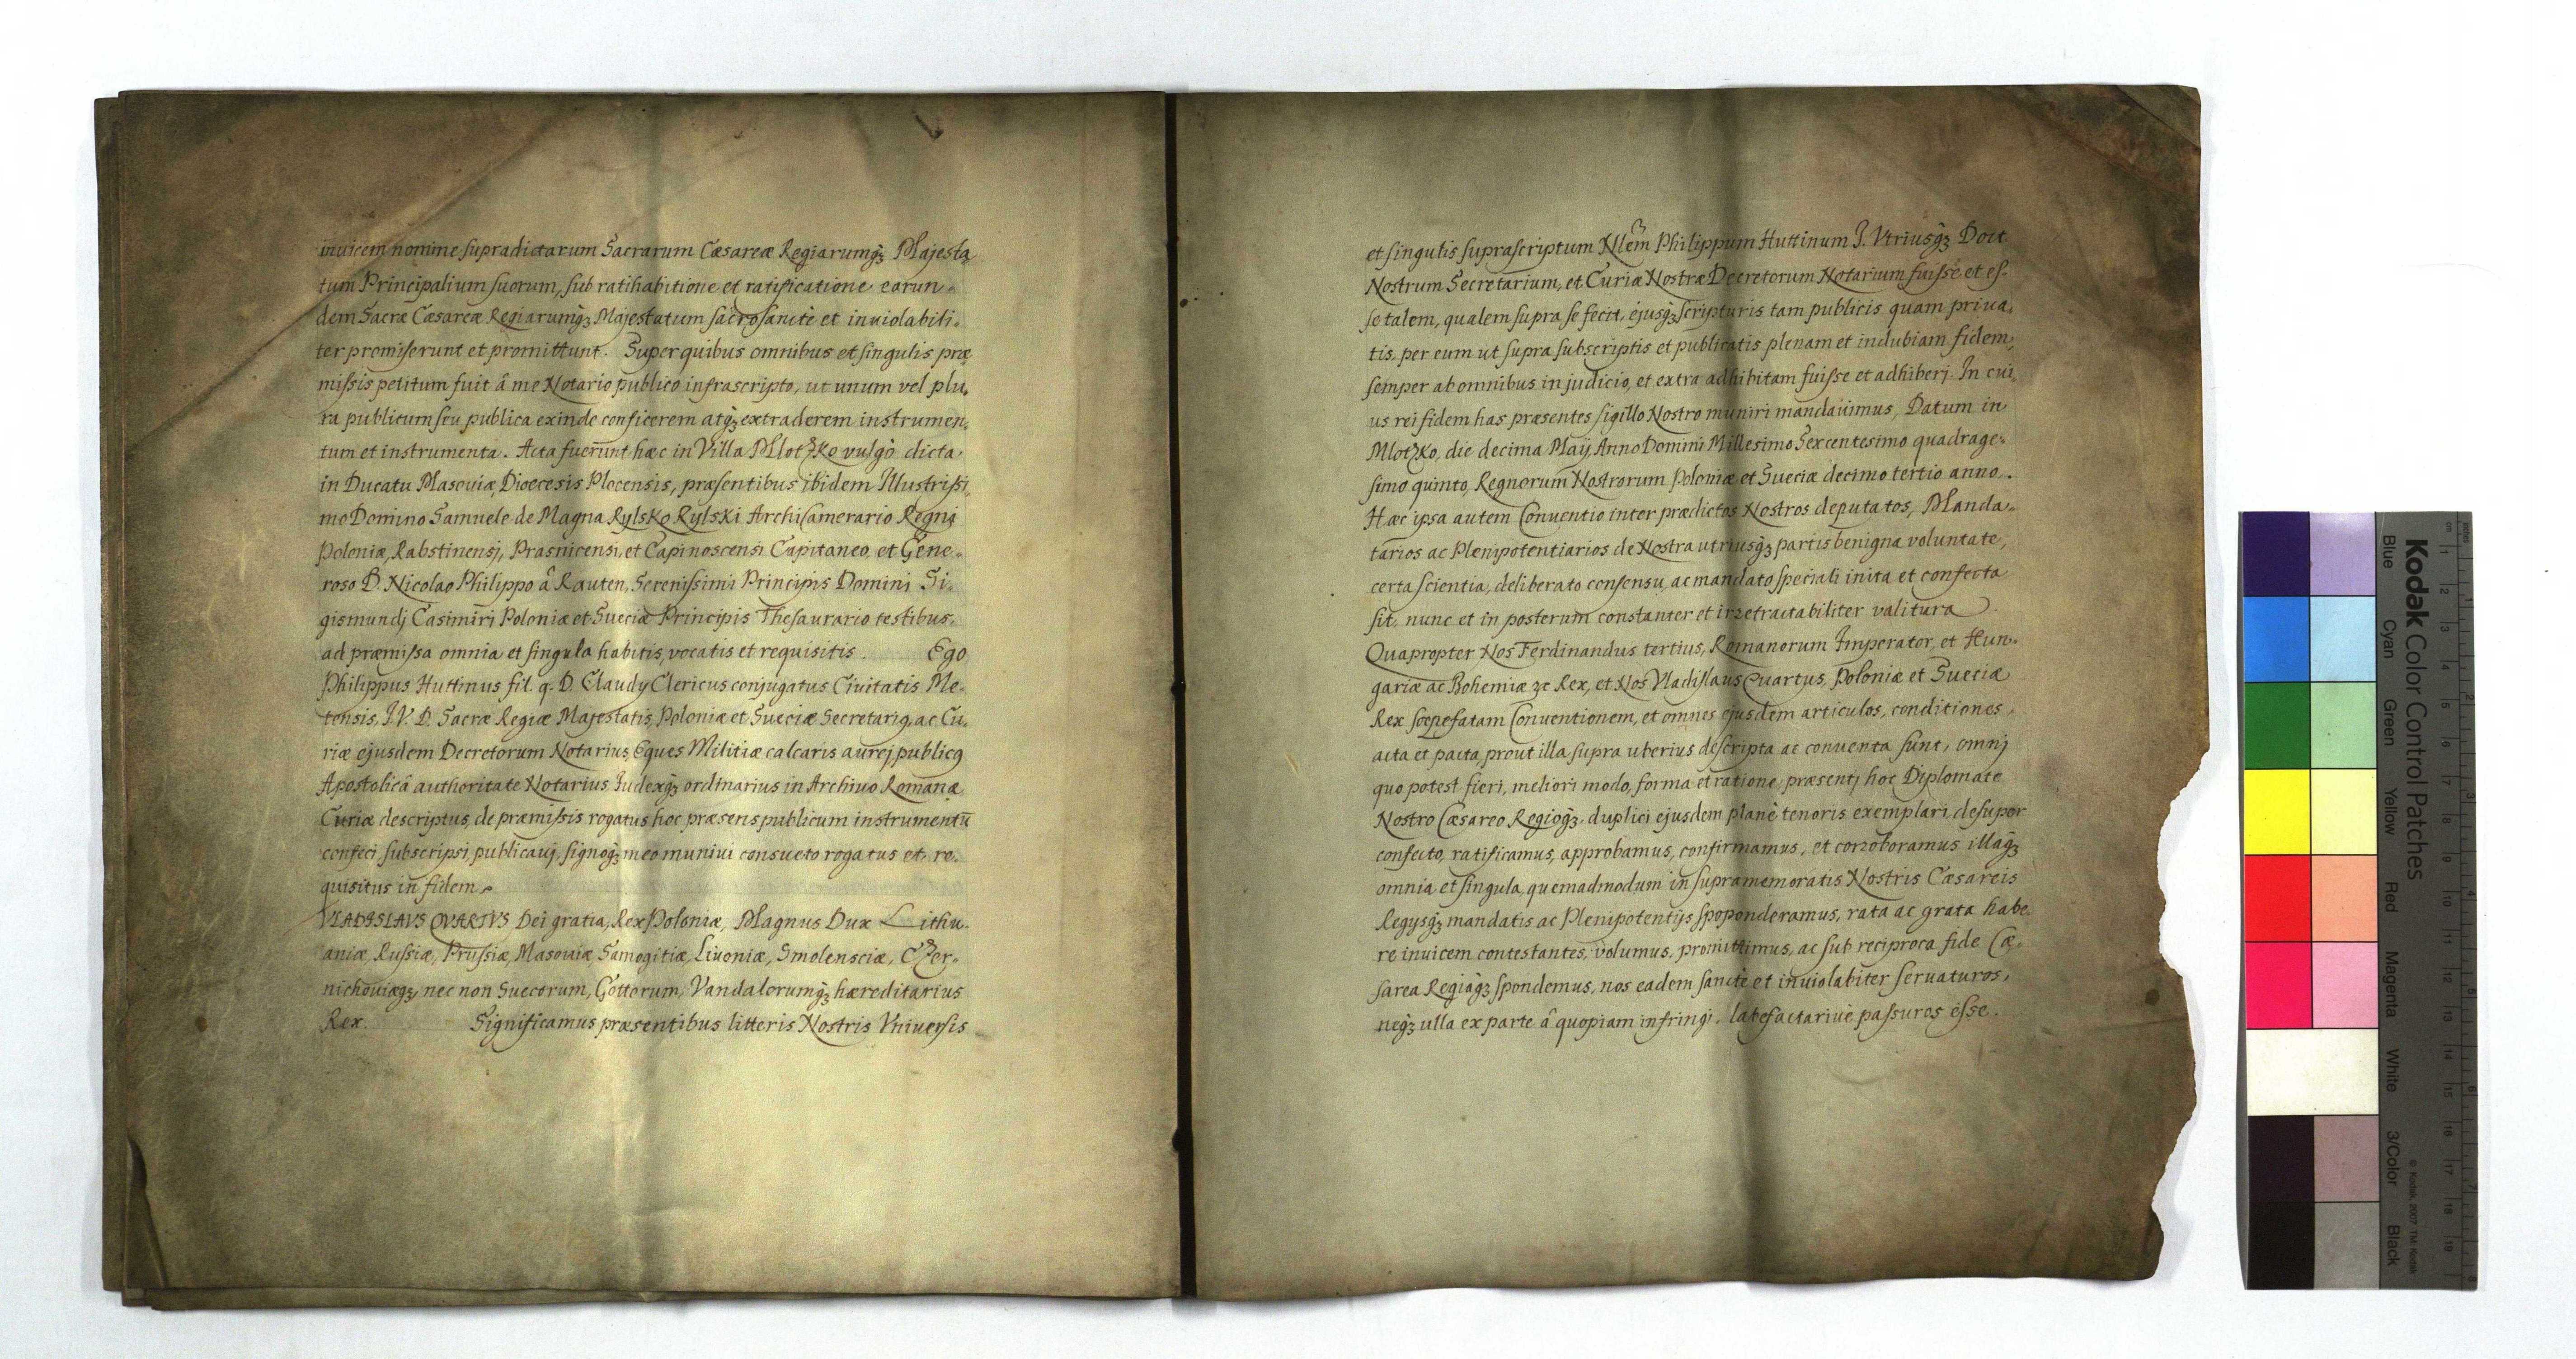 inuicem nomine supradictarum Sacrarum Cæsareæ Regiarumq́ꝫ Majesta
tum Principalium suorum, sub ratihabitione et ratificatione earun-
dem Sacræ Cæsareæ Regiarumq́ꝫ Majestatum sacrosancte et inuiolabili-
ter promiserunt et promittunt. Super quibus omnibus et singulis præ
missis petitum fuit â me Notario publico infrascripto, ut unum vel plu,
ra publicum seu publica exinde conficerem atq́ꝫ extraderem instrumen,
tum et instrumenta. Acta fuerunt hæc in Villa Mlotzko vulgò dicta
in Ducatu Masouiæ, Dioecesis Plocensis, præsentibus ibidem Illustrissi,
mo Domino Samuele de Magna Rylsko Rylski Archicamerario Regni
Poloniæ, Rabstinensj, Prasnicensi, et Capinoscensi Capitaneo, et Gene-
roso D. Nicolao Philippo â Rauten, Serenissimi Principis Dominj Si-
gismundj Casimiri Poloniæ et Sueciæ Principis Thesaurario testibus,
ad præmissa omnia et singula habitis, vocatis et requisitis. Ego
Philippus Huttinus fil. q. D. Claudÿ Clericus conjugatus Ciuitatis Me-
tensis, J. V. D. Sacræ Regiæ Majestatis, Poloniæ et Sueciæ Secretariꝯ, ac Cu-
riæ ejusdem Decretorum Notarius, Eques Militiæ calcaris aurej, publicꝯ
Apostolicâ authoritate Notarius Judexq́ꝫ ordinarius in Archiuo Romanæ
Curiæ descriptus, de præmissis rogatus hoc præsens publicum instrumentū
confeci subscripsi, publicauj, signoq́ꝫ meo muniui consueto rogatus et re-
quisitus in fidem
VLADISLAVS QVARTVS Dei gratia, Rex Poloniæ, Magnus Dux Lithu-
aniæ, Russiæ, Prussiæ, Masouiæ, Samogitiæ, Liuoniæ, Smolensciæ, Czer-
nichouiæq́ꝫ, nec non Suecorum, Gottorum, Vandalorumq́ꝫ hæreditarius
Rex. Significamus præsentibus litteris Nostris Vniuersis
et singulis suprascriptum Nlem Philippum Huttinum J. Vtriusq́ꝫ Doct
Nostrum Secretarium, et Curiæ Nostræ Decretorum Notarium fuisse et es-
se talem, qualem supra se fecit, ejusq́ꝫ scripturis tam publicis quam priua,
tis, per eum ut supra subscriptis et publicatis plenam et indubiam fidem,
semper ab omnibus in judicio, et extra adhibitam fuisse et adhiberj. In cui,
us rei fidem has præsentes sigillo Nostro muniri mandauimus, Datum in
Mlotzko, die decima Maÿ, Anno Domini Millesimo Sexcentesimo quadrage-
simo quinto, Regnorum Nostrorum Poloniæ et Sueciæ decimo tertio anno.
Hæc ipsa autem Conuentio inter prædictos Nostros deputatos, Manda-
tarios ac Plenipotentiarios de Nostra utriusq́ꝫ partis benigna voluntate,
certa scientia, deliberato consensu, ac mandato speciali inita et confecta
sit, nunc et in posterum constanter et irretractabiliter valitura
Quapropter Nos Ferdinandus tertius, Romanorum Imperator, et Hun-
gariæ ac Bohemiæ ꝛc Rex, et Nos Vladislaus Quartus, Poloniæ et Sueciæ
Rex sæpefatam Conuentionem, et omnes ejusdem articulos, conditiones,
acta et pacta, prout illa supra uberius descripta ac conuenta sunt, omnj
quo potest fieri, meliori modo, forma et ratione, præsentj hoc Diplomate
Nostro Cæsareo Regioq́ꝫ, duplici ejusdem planè tenoris exemplari desuper
confecto, ratificamus, approbamus, confirmamus, et corroboramus illaq́ꝫ
omnia et singula, quemadmodum in supramemoratis Nostris Cæsareis
Regÿsq́ꝫ mandatis ac Plenipotentÿs spoponderamus, rata ac grata habe,
re inuicem contestantes, volumus, promittimus, ac sub reciproca fide Cæ-
sarea Regiaq́ꝫ spondemus, nos eadem sanctè et inuiolabiter seruaturos,
neq́ꝫ ulla ex parte â quopiam infringi, labefactariue passuros esse.
Kodak Color Control Patches
Blue Cyan Green Yellow Red Magenta White 3/Color Black
© Kodak, 2007 TM: Kodak